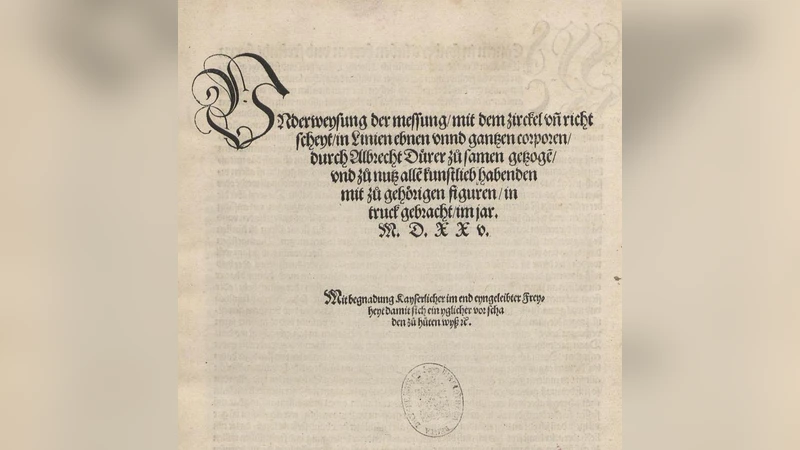 VNderweysung der messung/ mit dem zirckel uñ richt
scheyt/ in Linien ebnen unnd gantzen corporen/
durch Albrecht Dürer zů samen getzogẽ/
und zů nutz allẽ kunstlieb habenden
mit zů gehörigen figuren/ in
truck gebracht/ im jar.
M. D. X X v.
Mit begnadung Kayserlicher im end eyngeleibter Frey⸗
heyt damit sich ein yglicher vor scha
den zů hüten wyß ꝛc̃.